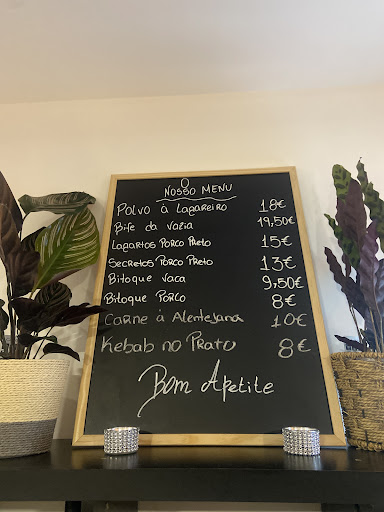 O
NOSSO MENU
POLVO à LAGAREIRO 18€
Bife da vazia 19,50€
LAGARTOS PORCO PRETO 15€
SECRETOS PORCO PRETO 13€
Bitoque vaca 9,50€
Bitoque PORCO 8€
CARNE à ALENTEJANA 10€
KEBAB NO PRATO 8€
Bom Apetite